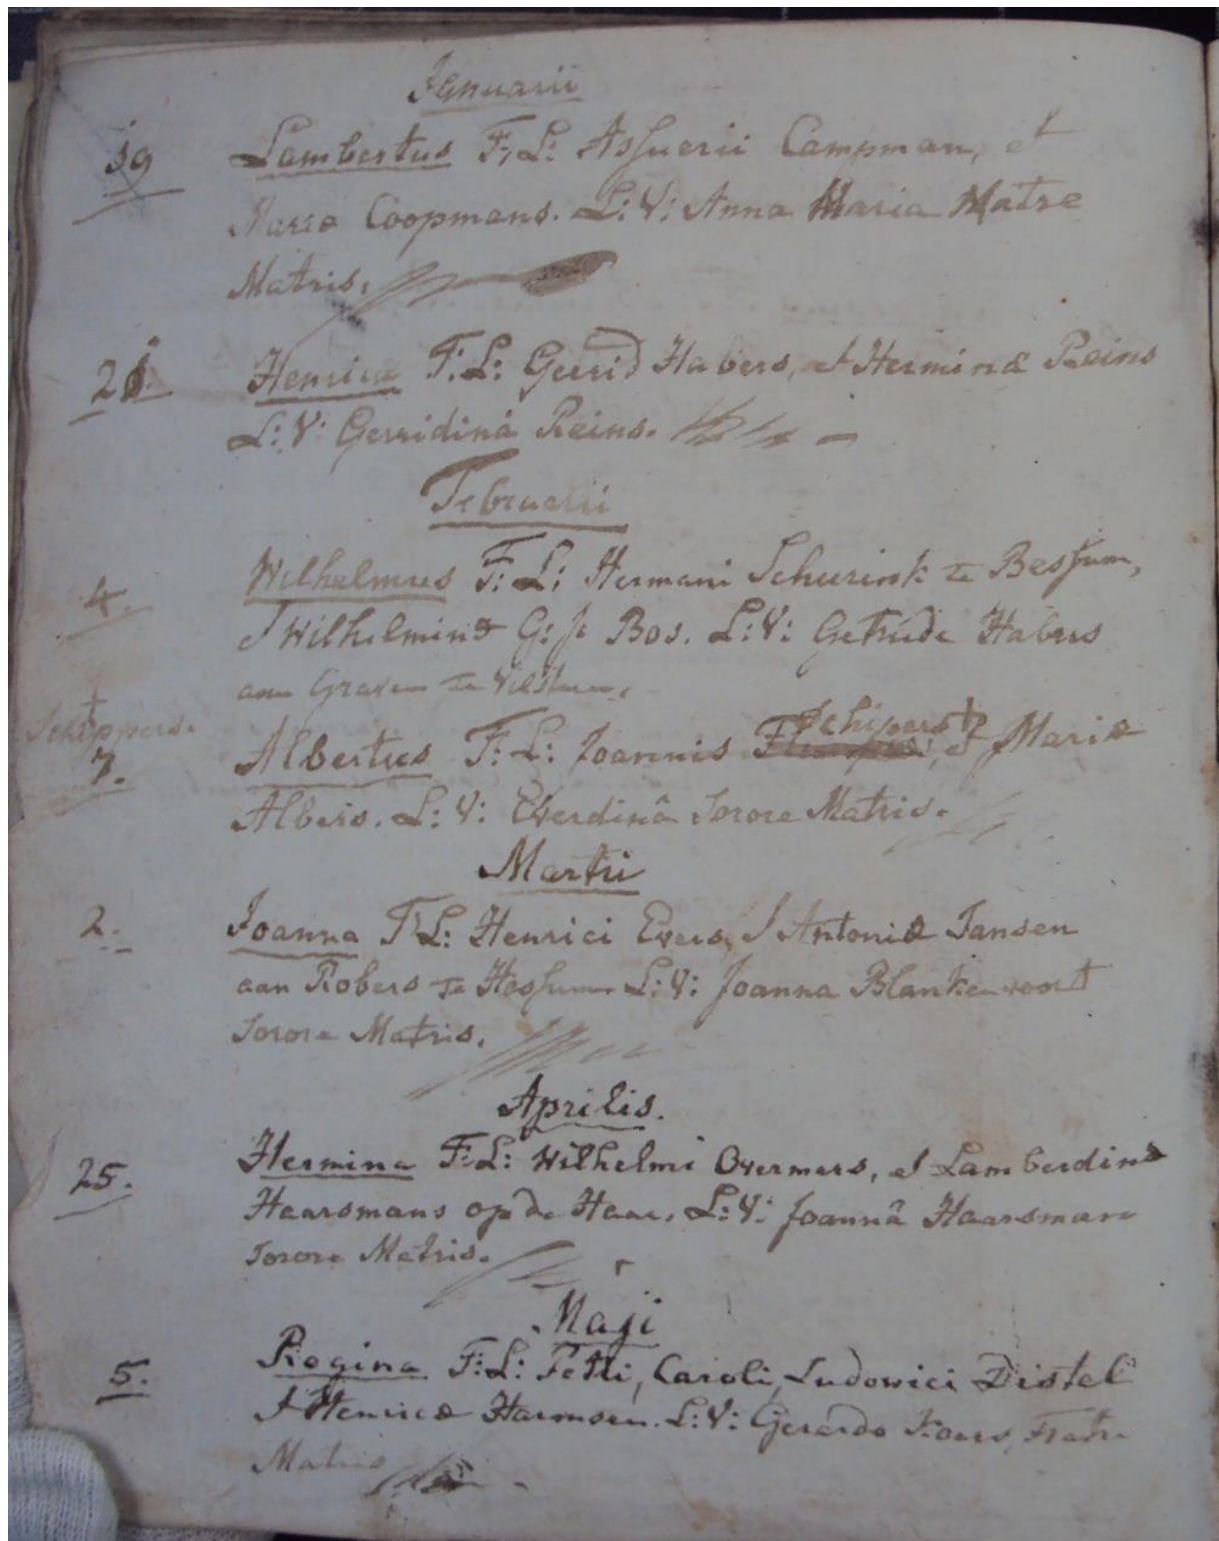 Januarii
19 Lambertus F: L: Assuerii Campman, et
Mariæ Coopmans. L: V: Anna Maria Matre
Matris.
21. Henrica F: L: Gerrid Habers, et Herminæ Reins
L: V: Gerridinâ Reins.
Februarii
4. Wilhelmus F: L: Hermani Schurink te Bessum,
et Wilhelminæ G: Bos. L: V: Getrude Habers
aan Graven te Vilsteren.
Schippers.
Schipers
7. Albertus F: L: Joannis et Mariæ
Albers. L: V: Everdinâ Sorore Matris.
Martii
2. Joanna F: L: Henrici Evers, et Antoniæ Jansen
aan Robers te Hessum L: V: Joanna Blankevoort
Sorore Matris.
Aprilis.
25. Hermina F: L: Wilhelmi Overmars, et Lamberdinæ
Haarsmans op de Haar. L: V: Joannâ Haarsman
Sorore Matris.
Maji
5. Regina F: L: Petri, Caroli, Ludovici Distel
et Henricæ Harmsen. L: V: Gerardo Fratre
Matris